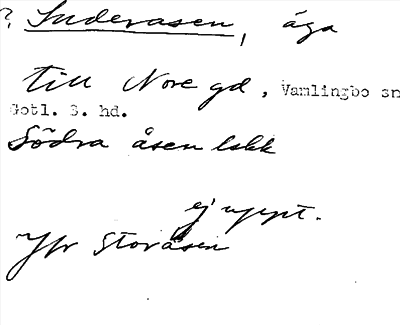 ? Suderåsen, äga
till Nore gd, Vamlingbo sn
Gotl. S. hd.
Södra åsen lokk
ej uppt.
Jfr Storåsen